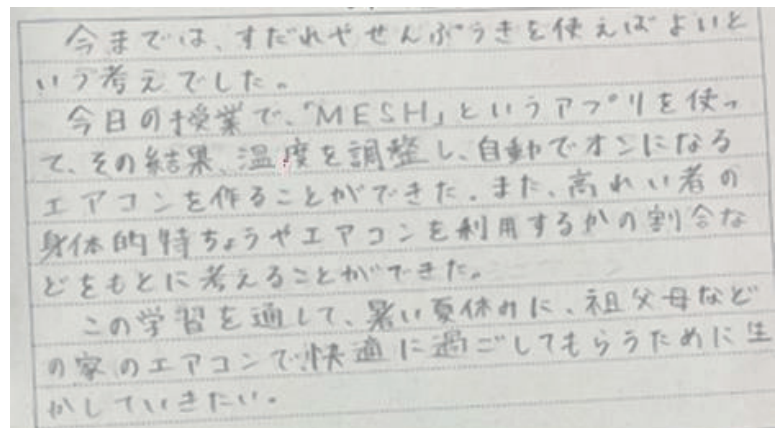 今までは、すだれやせんぷうきを使えばよいと
いう考えでした。
今日の授業で、「MESH」というアプリを使っ
て、その結果、温度を調整し、自動でオンになる
エアコンを作ることができた。また、高れい者の
身体的特ちょうやエアコンを利用するかの割合な
どをもとに考えることができた。
この学習を通して、暑い夏休みに、祖父母など
の家のエアコンで快適に過ごしてもらうために生
かしていきたい。